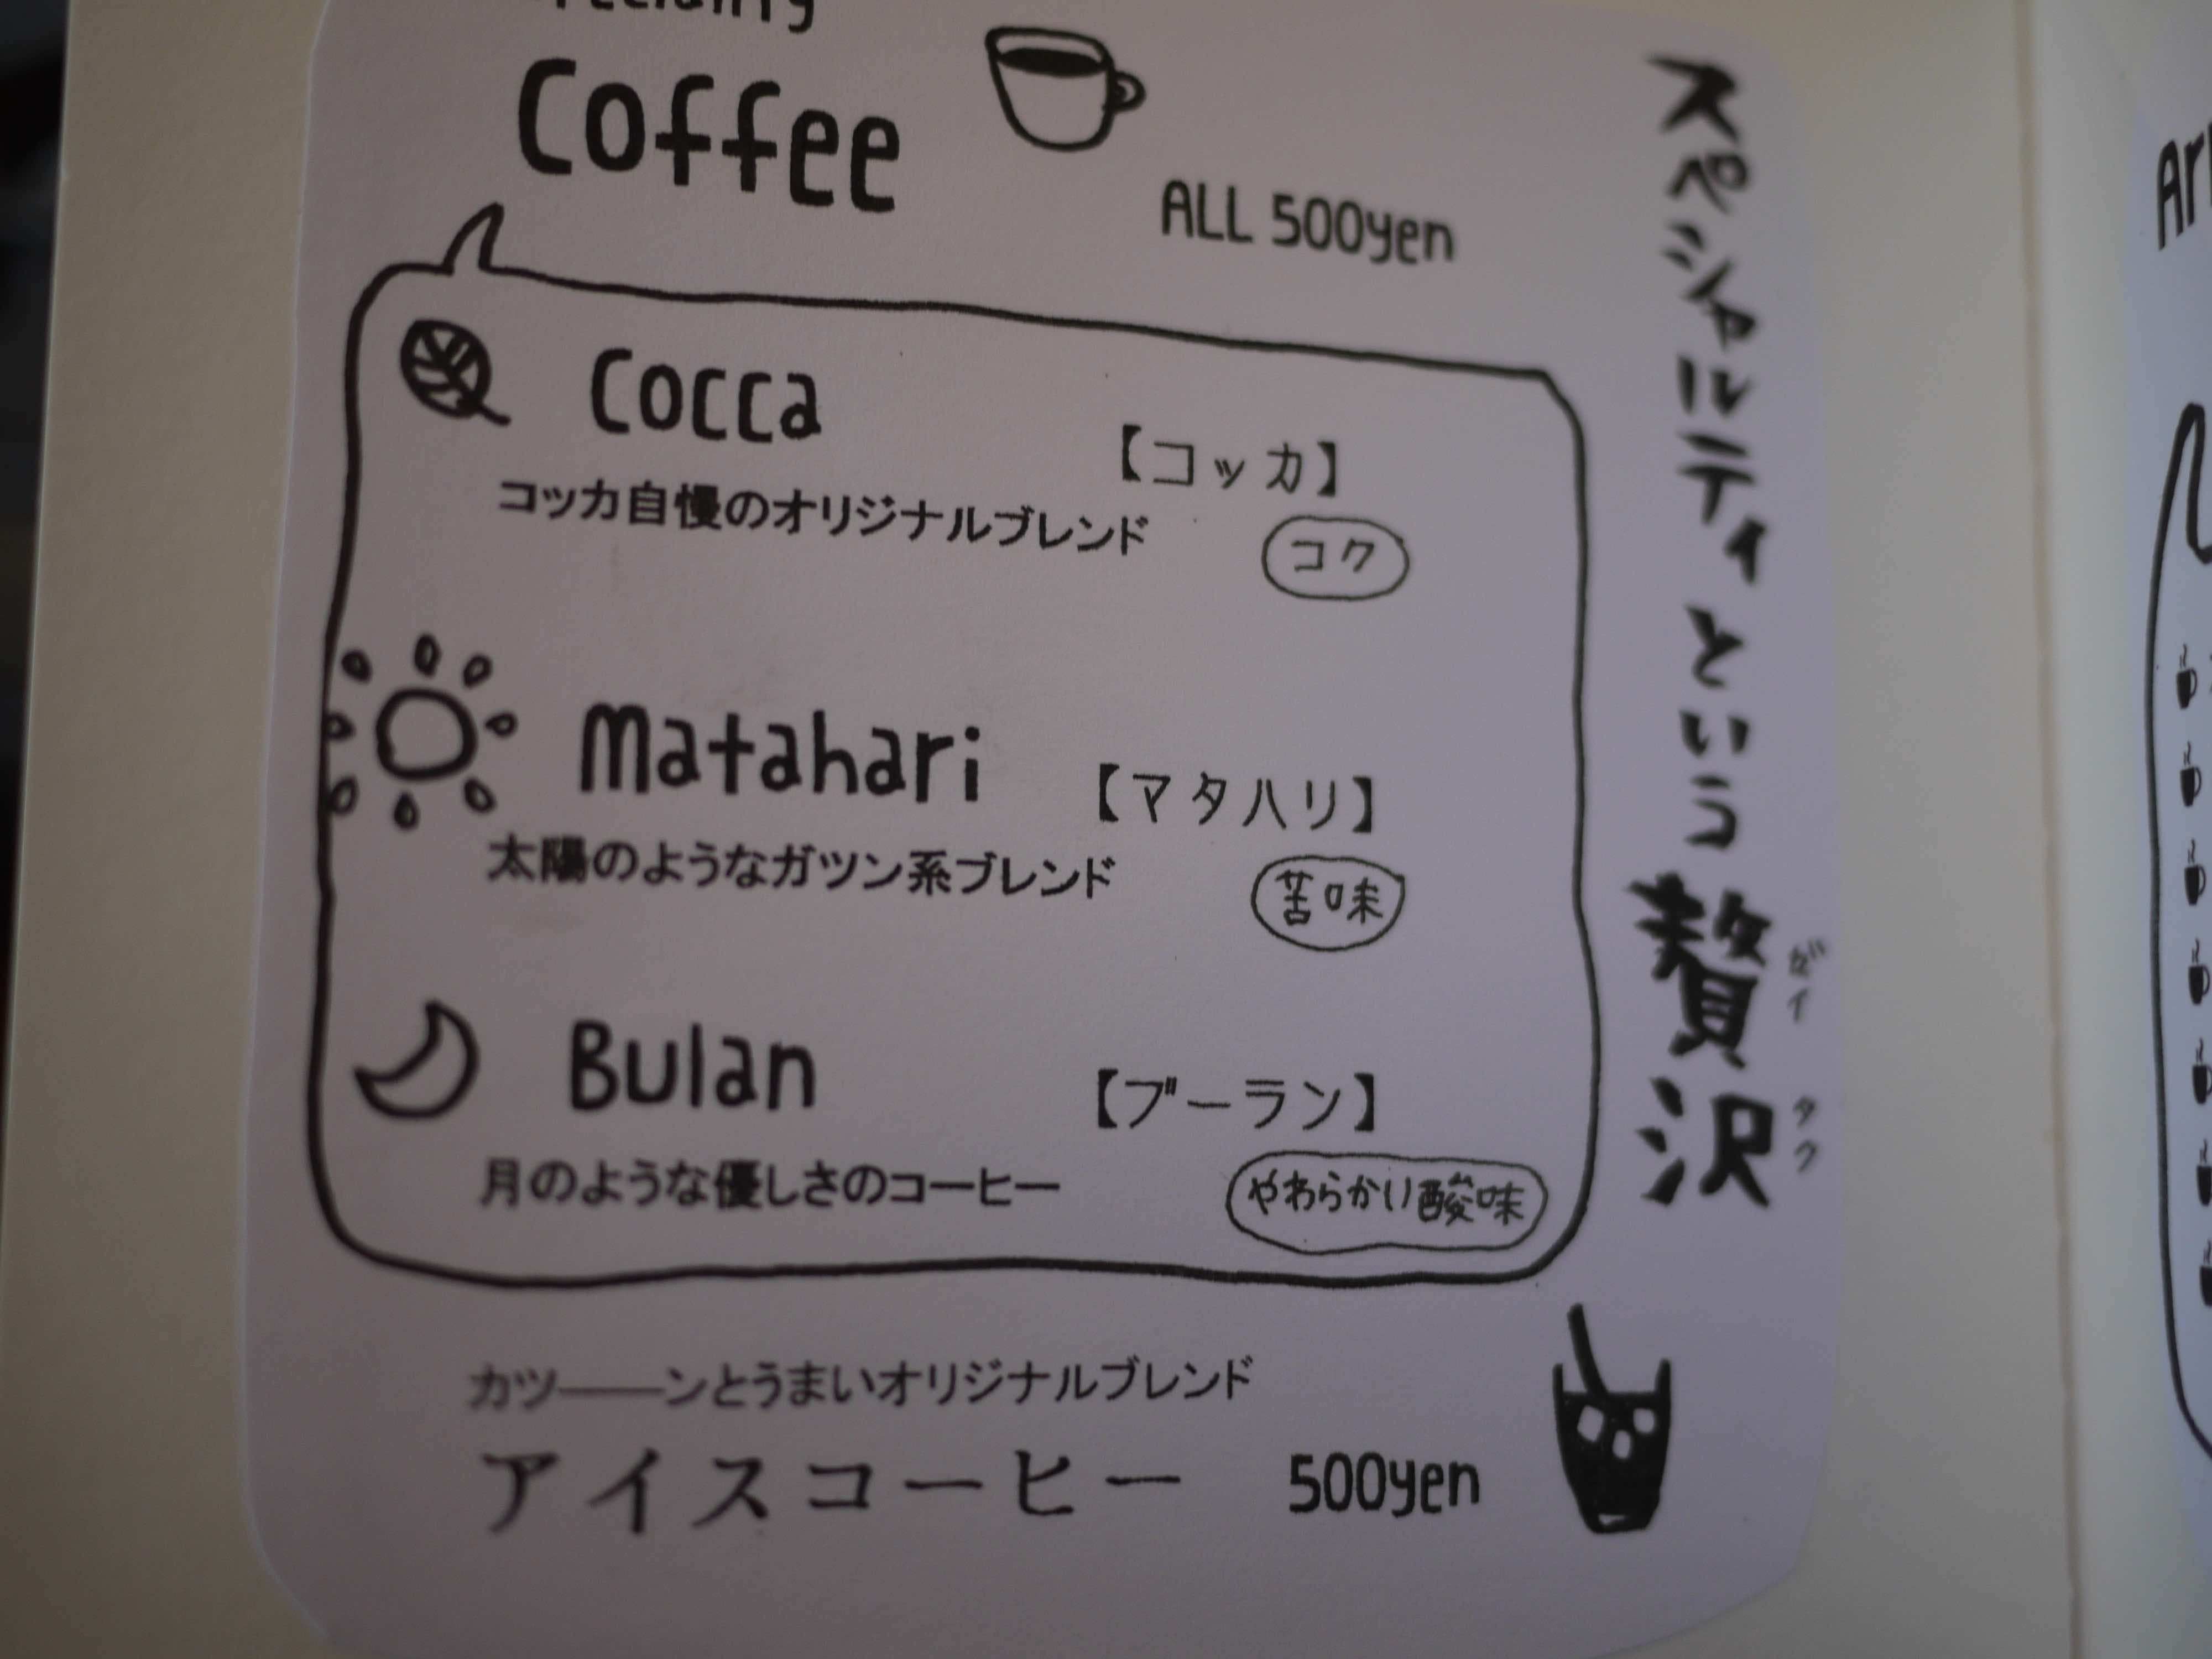 Coffee
ALL 500yen
Cocca
【コッカ】
コッカ自慢のオリジナルブレンド
コク
Matahari
【マタハリ】
太陽のようなガツン系ブレンド
苦味
Bulan
【ブーラン】
月のような優しさのコーヒー
やわらかい酸味
カツ――ンとうまいオリジナルブレンド
アイスコーヒー 500yen
スペシャルティという贅沢
ゼイ
タク